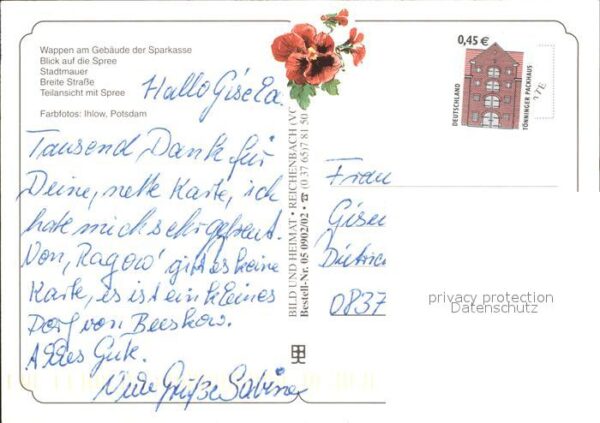 Wappen am Gebäude der Sparkasse
Blick auf die Spree
Stadtmauer
Breite Straße
Teilansicht mit Spree
Farbfotos: Ihlow, Potsdam
Hallo Gisela
Tausend Dank für
Deine, nette Karte, ich
habe mich sehr gefreut.
Von, Ragow' gibt es keine
Karte, es ist ein kleines
Dorf von Beeskow.
Alles Gute.
Viele Grüße Sabine
BILD UND HEIMAT • REICHENBACH (V
Bestell-Nr. 05 0902/02 • ☎ (0 37 65) 7 81 50
0,45 €
DEUTSCHLAND
TÖNNINGER PACKHAUS
Frau
Gisel
Dietric
0837
privacy protection
Datenschutz